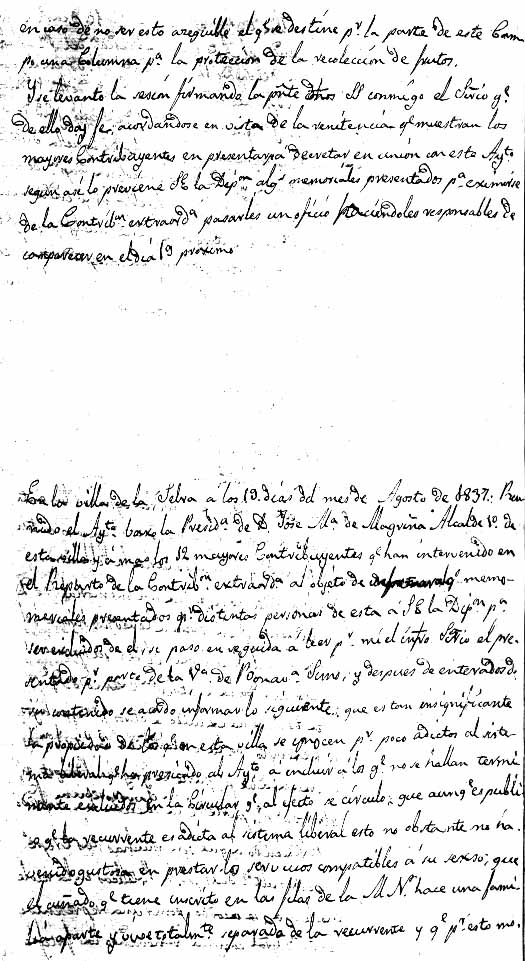 en caso de no ser esto asequible el qe. se destine pr. la parte de este Cam
po una Columna pa. la proteccion de la recolección de frutos.
Y se levanto la sesion firmando la pnte dhos SS conmigo el Srio qe.
de ello doy fe, acordandose en vista de la renitencia qe muestran los
mayores Contribuyentes en presentarsea decretar en union con este Aytto
segun asi lo previene SE la Dipon. algs memoriales presentados pa. eximirse
de la Contribon. extraorda pasarles un oficio haciéndoles responsables de
comparecer en el dia 19 proximo
En la villa de la Selva a los 19 dias del mes de Agosto de 1837: Reu
nido el Aytto. baxo la Presida. de D. Jose Ma. de Magriña Alcalde 1o. de
esta villa y a mas los 12 mayores Contribuyentes qe han intervenido en
el Reparto de la Contribon. extraorda al objeto de memo
meriales presentados pr. distintas personas de esta a SE la Dipon pa
ser excluidos de el; se paso en seguida a leer pr. mi el infro Srio el pre
sentado pr. parte de la Va. de Bonava. y despues de enterados de
su contenido se acordo informar lo siguiente: que es tan insignificante
la propiedad de los qe. en esta villa se conocen pr. poco adictos al siste
ma liberal qe. ha precisado al Aytto a incluir a los qe no se hallan termi
nante excluidos en la Circular qe. al efecto se circulo; que aunqe es publi
co qe la recurrente es adicta al sistema liberal esto no obstante no ha
venido gustosa en prestar los servicios compatibles á su sexso; que
el cuñado qe tiene inscrito en las filas de la M.N. hace una fami
lia aparte y vive totalmte. separada de la recurrente y qe pr. esto mo.